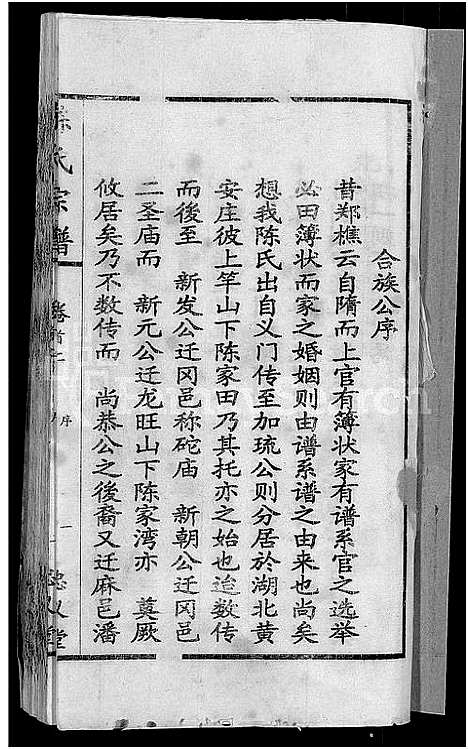 合族公序
昔郑樵云自隋而上官有簿状家有谱系官之选举
必田簿状而家之婚姻则由谱系谱之由来也尚矣
想我陈氏出自义门传至加琉公则分居於湖北黄
安庄彼上竿山下陈家田乃其托亦之始也迨数传
而後至 新发公迁冈邑称砣庙 新朝公迁冈邑
二圣庙而 新元公迁龙旺山下陈家湾亦 奠厥
攸居矣乃不数传而 尚恭公之後裔又迁麻邑潘
氏宗谱
卷首上
序
一